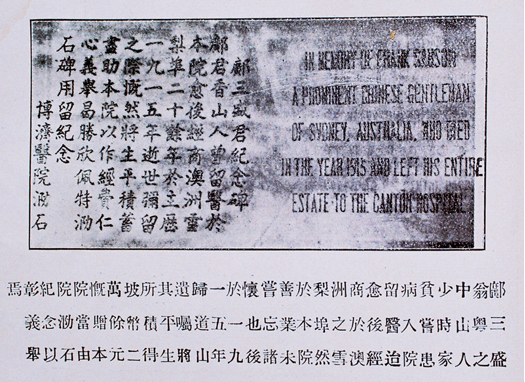 鄺三盛君紀念碑
鄺君香山人曾留醫於
本院愈後經商澳洲雪
梨埠二十餘年於主歷
一九一五年逝世彌留
之際慨然將生平積蓄
盡助本院以作經費仁
心義舉曷勝欣佩特泐
石碑用留紀念
博濟醫院泐石
IN MEMORY OF FRANK
A PROMINENT CHINESE GENTLEMAN
OF SYDNEY, AUSTRALIA, WHO DIED
IN THE YEAR 1915 AND LEFT HIS ENTIRE
ESTATE TO THE CANTON HOSPITAL
鄺三盛
翁粤之
中山人
少時家
貧嘗患
病入院
留醫迨
愈後經
商於澳
洲之雪
梨埠然
於本院
善業未
嘗忘諸
懷也後
於一九
一五年
歸道山
遺囑將
其平生
所積得
坡幣二
萬餘元
慨贈本
院當由
院泐石
紀念以
彰義舉
焉